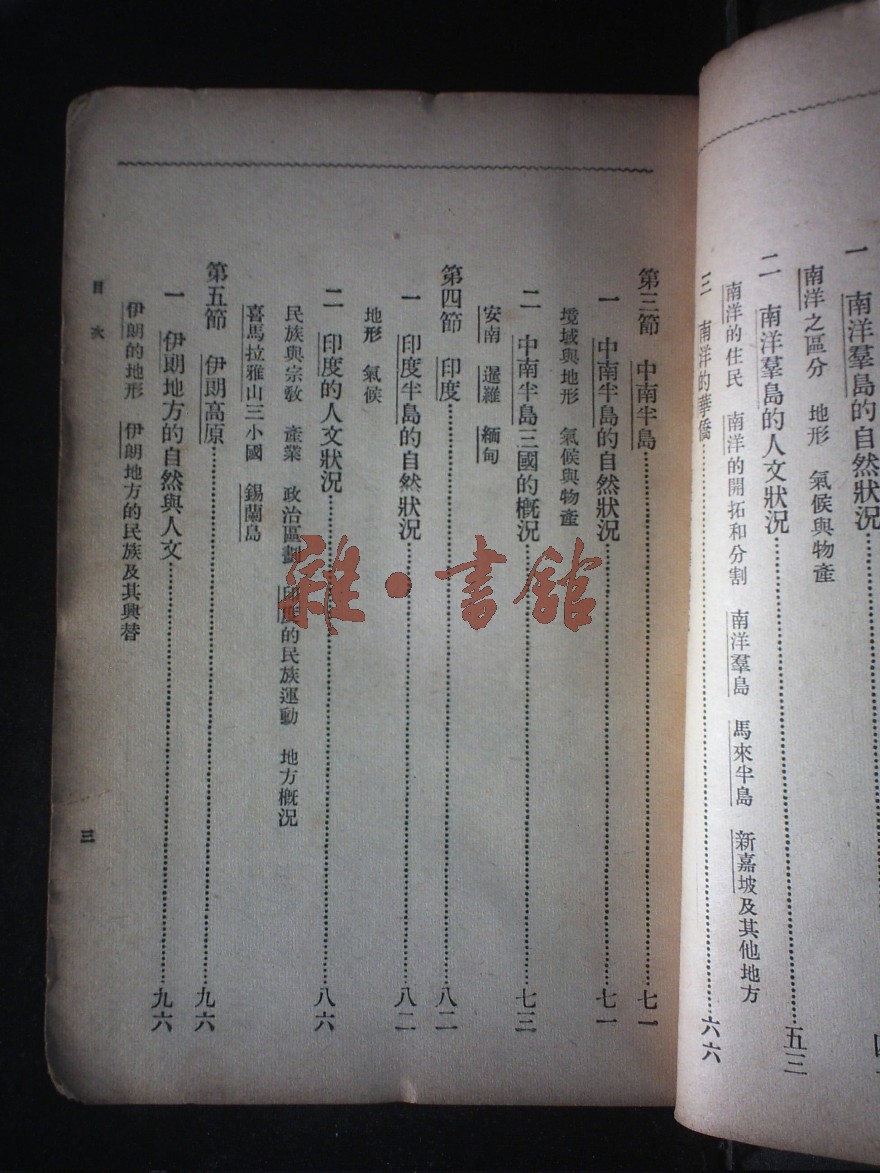 一 南洋羣島的自然狀況
南洋之區分 地形 氣候與物產
二 南洋羣島的人文狀況……五三
南洋的住民 南洋的開拓和分割 南洋羣島 馬來半島 新嘉坡及其他地方
三 南洋的華僑……六六
第三節 中南半島……七一
一 中南半島的自然狀況……七一
境域與地形 氣候與物產
二 中南半島三國的概況……七三
安南 暹羅 緬甸
第四節 印度……八二
一 印度半島的自然狀況……八二
地形 氣候
二 印度的人文狀況……八六
民族與宗教 產業 政治區劃 印度的民族運動 地方概況
喜馬拉雅山三小國 錫蘭島
第五節 伊朗高原……九六
一 伊朗地方的自然與人文……九六
伊朗的地形 伊朗地方的民族及其興替
目次
三
雜·書館